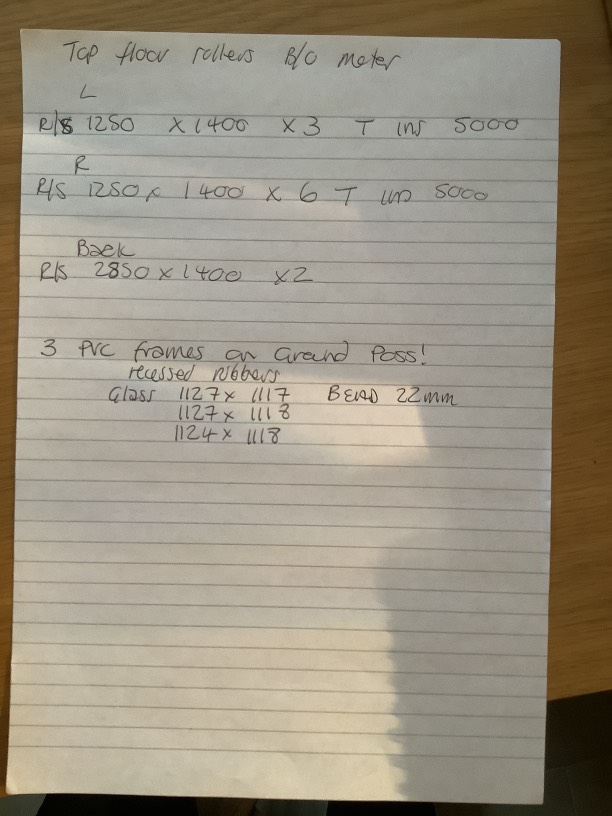 Top floor rollers B/O meter
L
R/S 1250 x 1400 x 3 T ins 5000
R
R/S 1250 x 1400 x 6 T ins 5000
Back
R/S 2850 x 1400 x 2
3 PVC frames on Ground Poss!
recessed rubbers
Glass 1127 x 1117 BEAD 22mm
1127 x 1118
1124 x 1118